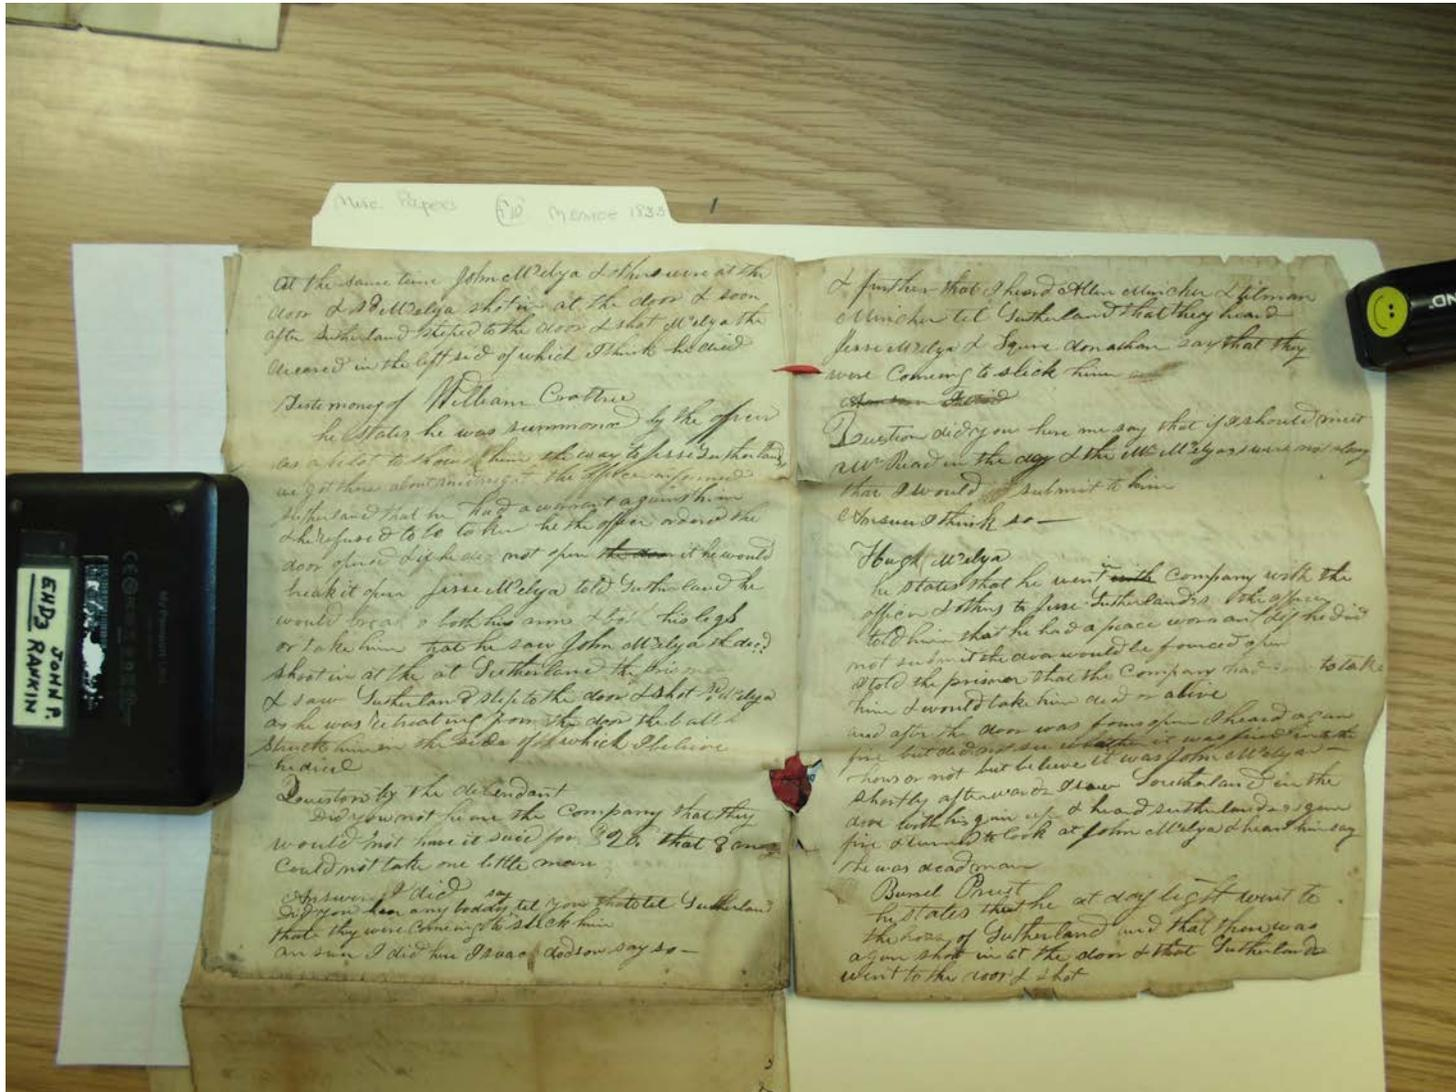 Misc. Papers F10 Monroe 1833
at the same time John McElya & others were at the
door & sd McElya shot in at the door & soon
after Sutherland steped to the door & shot McElya the
deceased in the left sid of which I think he died
Testimony of William Crabtree
he states he was summoned by the officer
as a pilot to show him the way to Jesse Sutherlands
we got there about midnight the officer informed
Sutherland that he had a warrant against him
& he refused to be taken he the officer ordered the
door opened & if he did not open the door it he would
break it open Jesse McElya told Sutherland he
would break both his arms & both his legs
or take him that he saw John McElya
shoot in at the at Sutherland the
& I saw Sutherland step to the door & shot McElya
as he was retreating from the door the ball
struck him on the side of which I believe
he died
Queston by the defendant
Did you not hear the company that they
would not have it said for $20 that 8 
could not take one little man
Answer I did
Did you hear any boddy say tel you that tel Sutherland
that they were coming to slick him
answer I did hear Isaac dodson say so —
& further that I heard Allen Mincher & 
Mincher tel Sutherland that they heard
Jesse McElya & Squire donathan say that they
were Coming to slick him
Question did you here me say that if I should meet
Mr Read in the day & the McElyas were not along
that I would submit to him
Answer I think so —
Hugh McElya
he states that he went with Company with the
officer & others to Jesse Sutherlands the officer
told him that he had a peace warrant & if he did
not submit the door would be founced open
& told the prisoner that the Company had to take
him & would take him dead or alive
and after the door was open I heard a gun
fire but did not see whether it was fired in the
hous or not but believe it was John McElya —
shortly afterwards I saw Southerland in the
dore with his gun up & heard Sutherlands gun
fire & turned to look at John McElya & heard him say
he was dead man
Burrel Priest
he states that he at day light went to
the hous of Sutherland and that there was
a gun shot in at the door & that Sutherland
went to the door & shot
JOHN P.
RANKIN